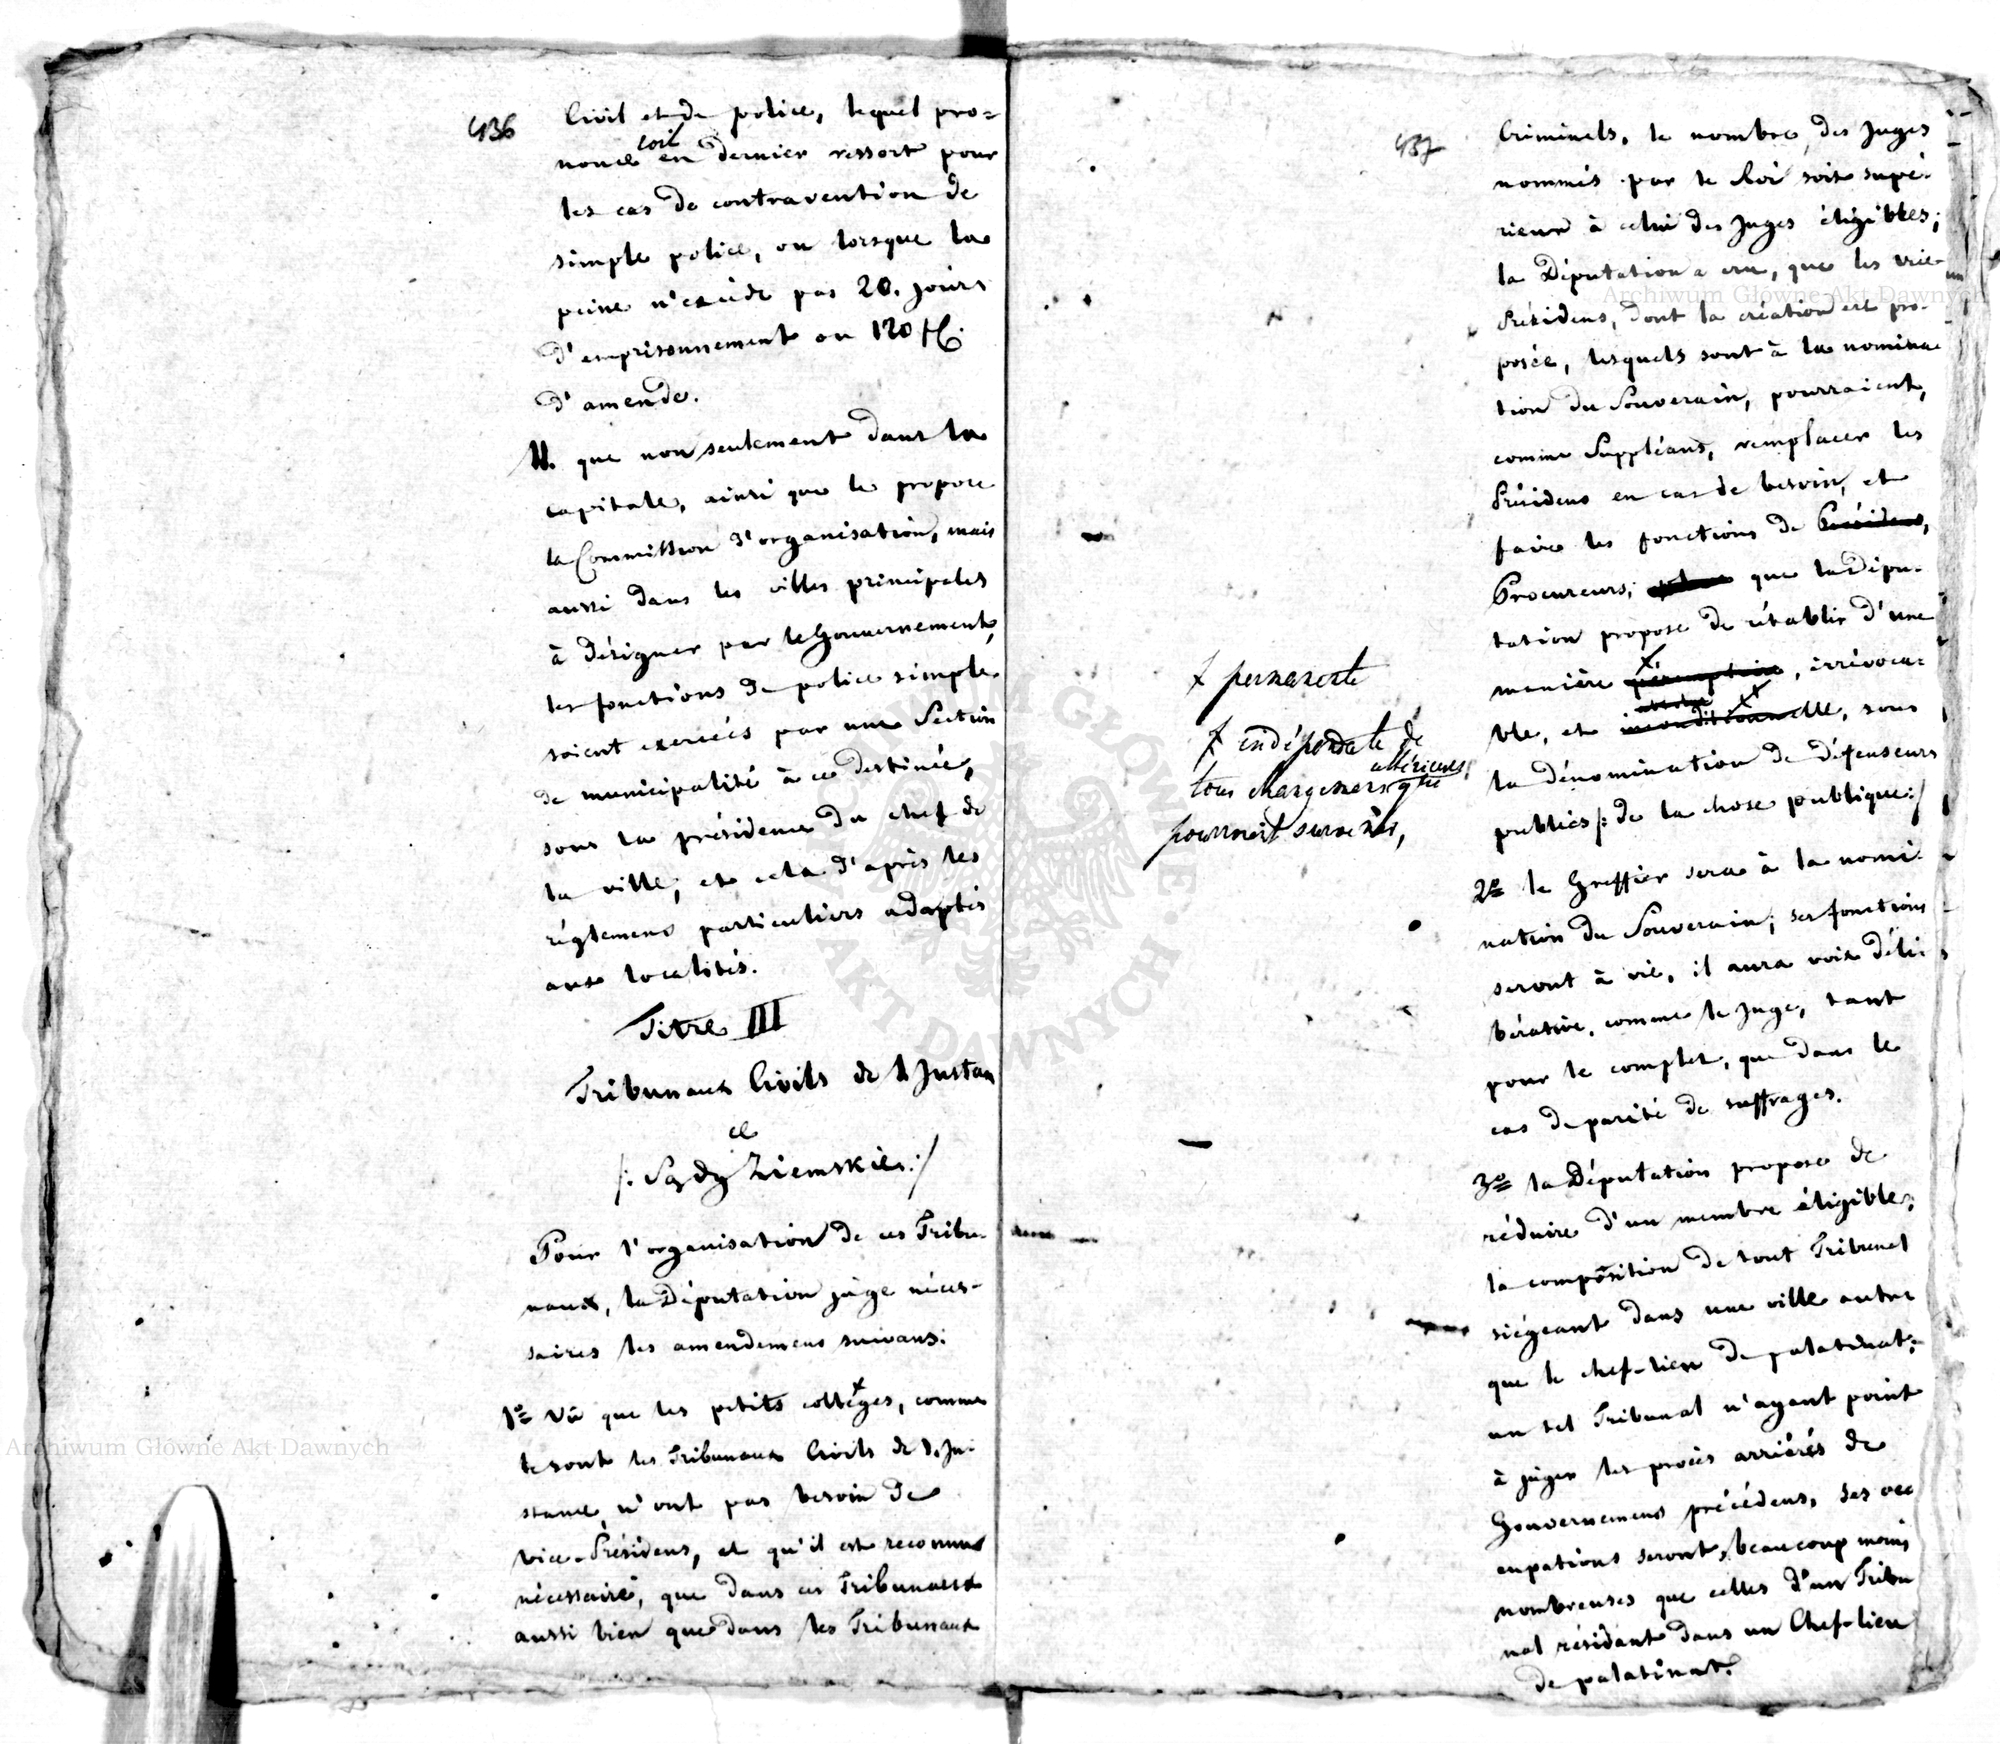 436
Civil et de police, lequel pro=
soit
nonce en dernier ressort pour
les cas de contravention de
simple police, ou lorsque la
peine n'excède pas 20. jours
d'emprisonnement ou 120 fl.
d'amende.
11. que non seulement dans la
capitale, ainsi que le propose
la Commission d'organisation, mais
aussi dans les villes principales
à désigner par le Gouvernement,
les fonctions de police simple
soient exercées par une Section
de municipalité à ce destinée,
sous la présidence du chef de
la ville, et cela d'après les
réglemens particuliers adaptés
aux localités.
Titre III
Tribunaux Civils de 1 Instan
ce
/: Sądy Ziemskie :/
Pour l'organisation de ces Tribu-
naux, la Députation juge néces-
saires les amendemens suivans:
1º Vû que les petits collèges, comme
le sont les Tribunaux Civils de 1. In-
stance, n'ont pas besoin de
vice-Présidens, et qu'il est reconnu
nécessaire, que dans ces Tribunaux
aussi bien que dans les Tribunaux
437
Criminels, le nombre des Juges
nommés par le Roi soit supé-
rieur à celui des Juges éligibles;
la Députation a cru, que les vice-
Présidens, dont la création est pro-
posée, lesquels sont à la nomina-
tion du Souverain, pourraient,
comme Suppléans, remplacer les
Présidens en cas de besoin, et
faire les fonctions de Présidens,
Procureurs; que la Dépu-
tation propose de rétablir d'une
manière péremptoire, irrévoca-
absolue
ble, et inconditionnelle, sous
la dénomination de défenseurs
publics /: de la chose publique :/
x permanente
x indépendante de
ultérieurs,
tous changemens que
pourroit survenir,
2º le Greffier sera à la nomi-
nation du Souverain; ses fonctions
seront à vie, il aura voix déli-
bérative, comme le Juge, tant
pour le complet, que dans le
cas de parité de suffrages.
3º la Députation propose de
réduire d'un membre éligible,
la composition de tout Tribunal
siégeant dans une ville autre
que le chef-lieu de palatinat;
un tel Tribunal n'ayant point
à juger les procès arriérés de
Gouvernemens précédens, ses occ
cupations seront beaucoup moins
nombreuses que celles d'un Tribu
nal résidant dans un Chef-lieu
de palatinat.
Archiwum Główne Akt Dawnych
Archiwum Główne Akt Dawnych